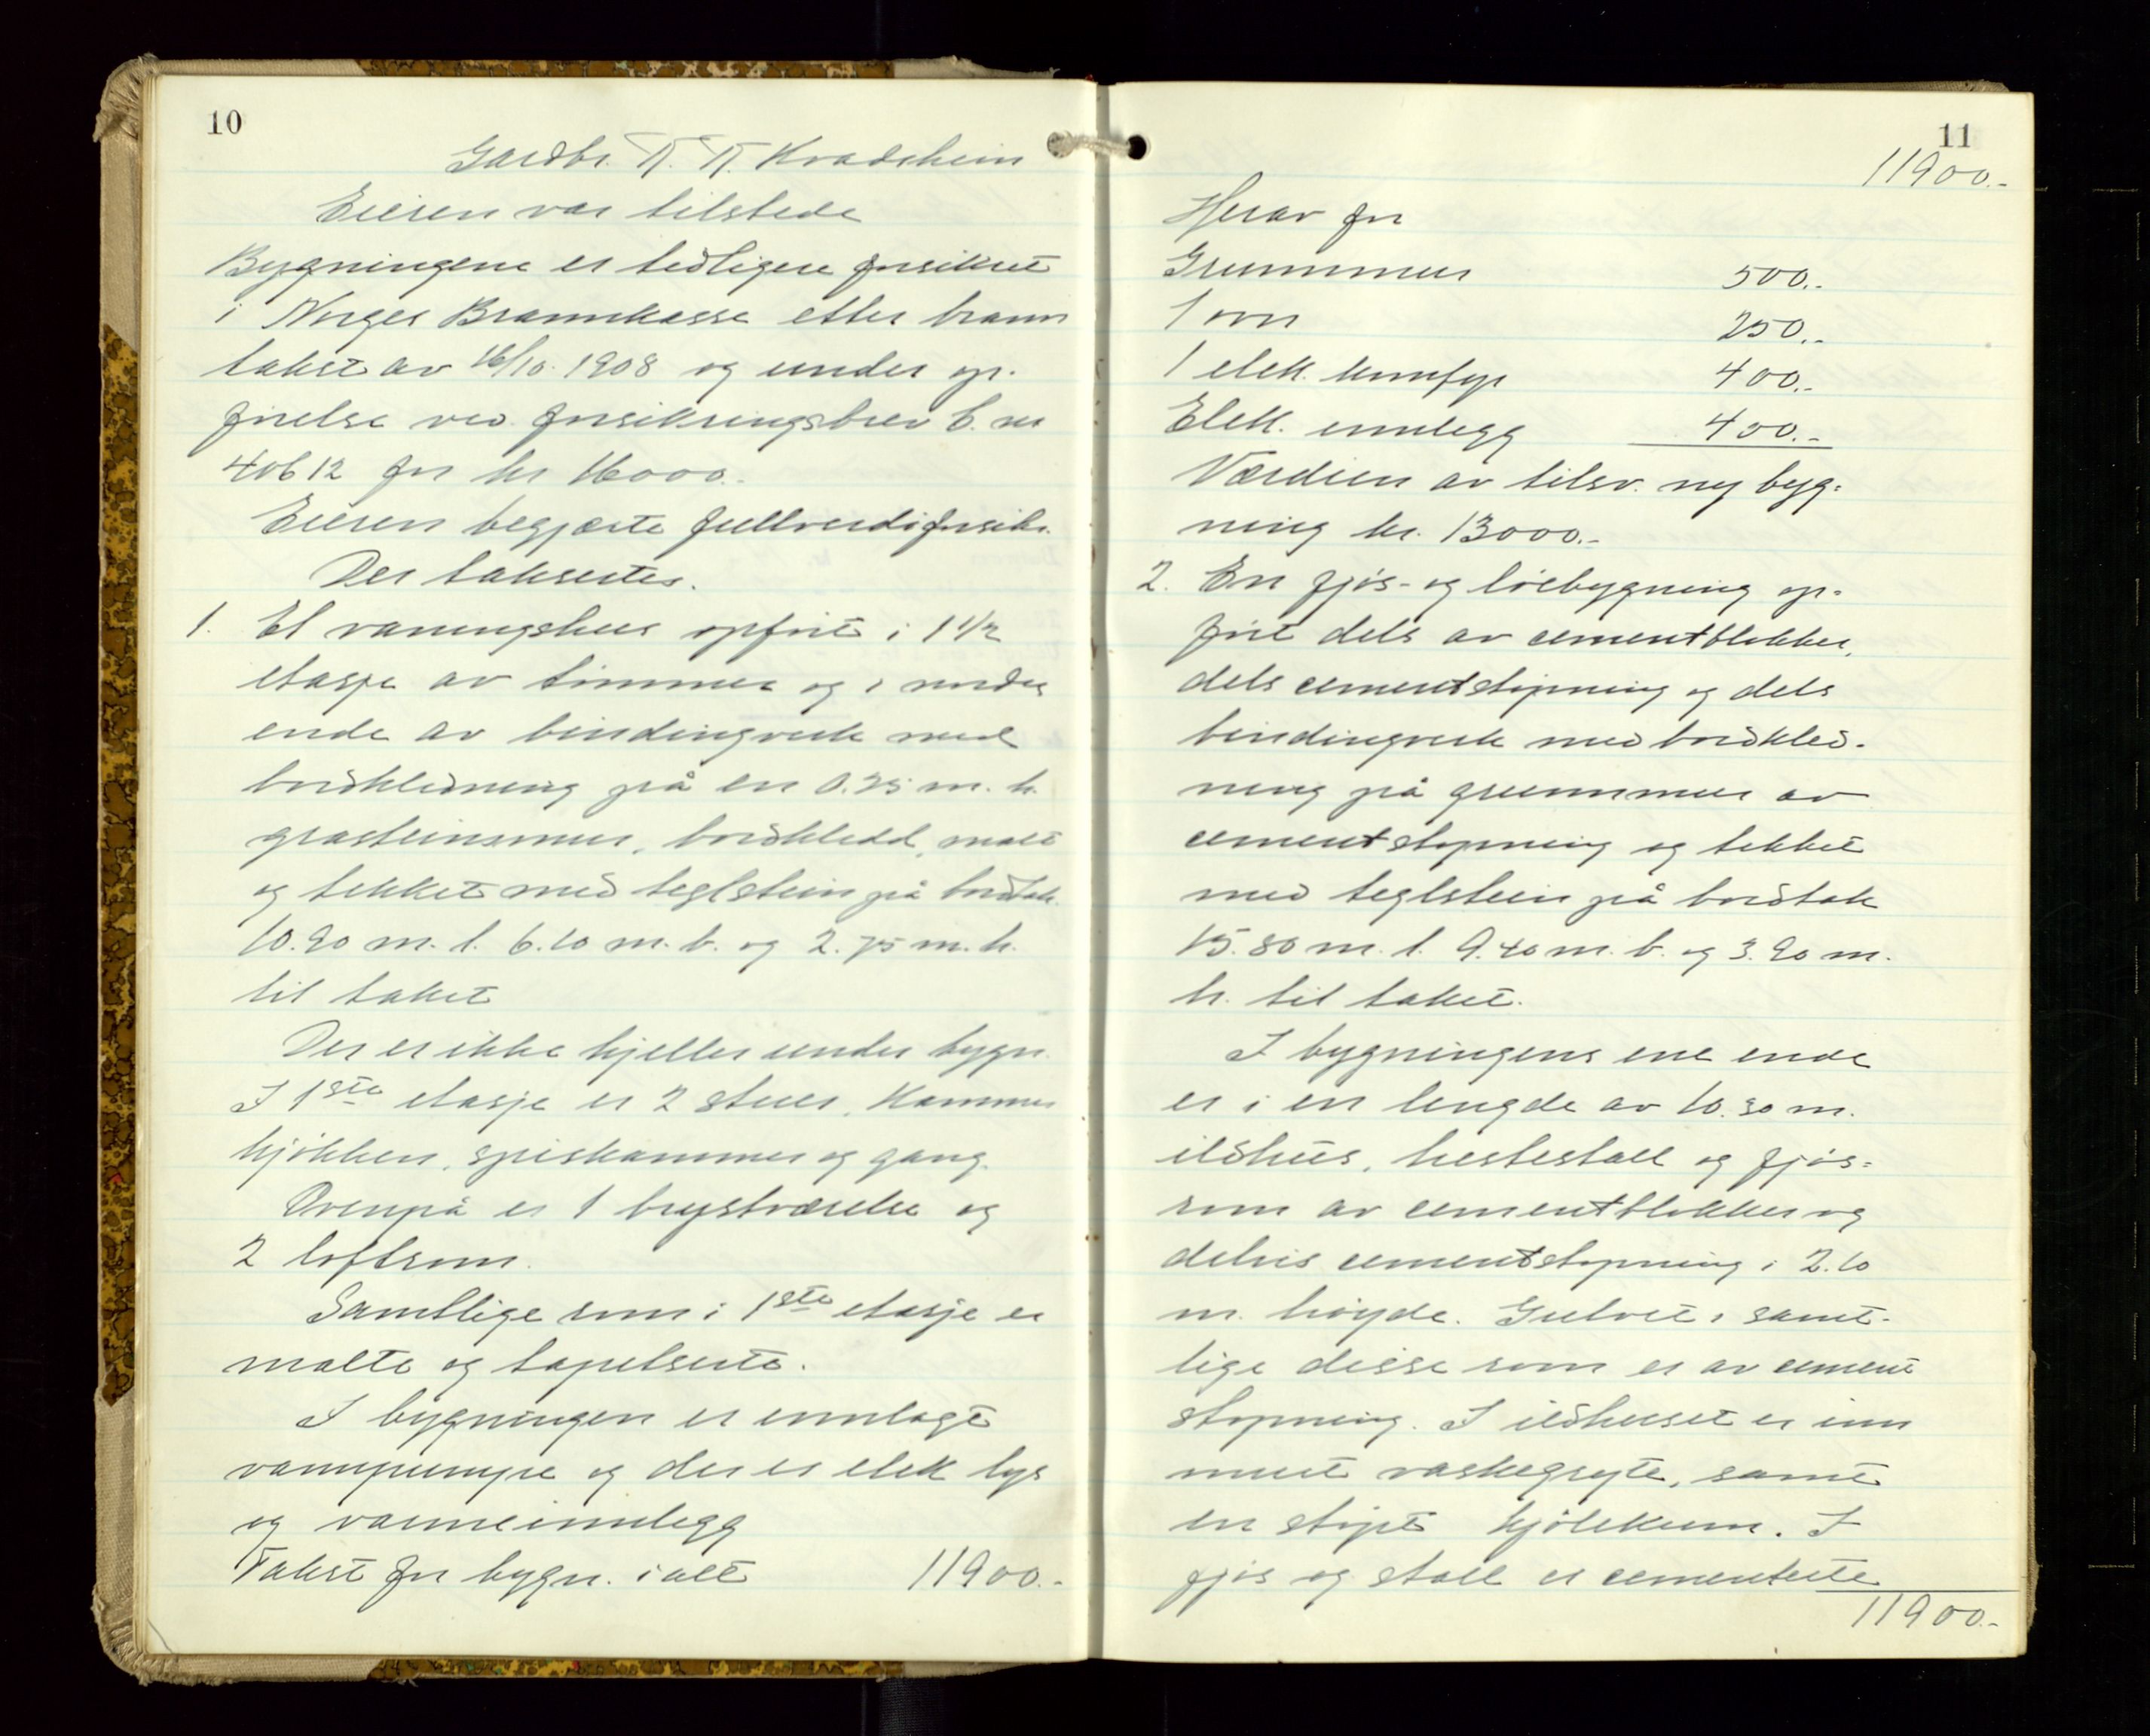 10
Gardbr. T. T. Kvadsheim
Eieren var tilstede
Bygningene er tidligere forsikret
i Norges Brannkasse efter brann
takst av 16/10. 1908 og under op-
førelse ved forsikringsbrev C. nr
40612 for kr 16000.-
Eieren begjærte fullverdiforsikr.
Der takseertes.
1. Et vaningshus opført i 1 1/2
etasje av tømmer og i nordre
ende av bindingverk med
bordkledning på en 0.25 m. h.
gråsteinsmur, bordkledd, malt
og tekket med teglstein på bordtak
10.90 m. l. 6.10 m. b. og 2.75 m. h.
til taket
Der er ikke kjeller under bygn.
I 1ste etasje er 2 stuer, Kammer
kjøkken, spiskammer og gang.
Ovenpå er 1 brystværelse og
2 loftsrom.
Samtlige rom i 1ste etasje er
malte og tapetserte.
I bygningen er innlagt
vannpumpe og der er elek lys
og varmeinnlegg
Takst for bygn. i alt 11900.-
11
11900.-
Herav for
Grunnmur 500.-
1 ovn 250.-
1 elek. komfyr 400.-
Elek. innlegg 400.-
Værdien av tilsv. ny byg-
ning kr. 13000.-
2. En fjøs- og løebygning op-
ført dels av cementblokker,
dels cementstøpning og dels
bindingverk med bordkled-
ning på grunnmur av
cementstøpning og tekket
med teglstein på bordtak
15.80 m. l. 9.40 m. b. og 3.90 m.
h. til taket.
I bygningens ene ende
er i en lengde av 10.30 m.
ildhus, hestestall og fjøs-
rom av cementblokker og
delvis cementstøpning i 2.10
m. høyde. Gulvet i samt-
lige disse rom er av cement
støpning. I ildhuset er inn
muret vaskegryte, samt
en støpt kjølekum. I
fjøs og stall er cementerte
11900.-